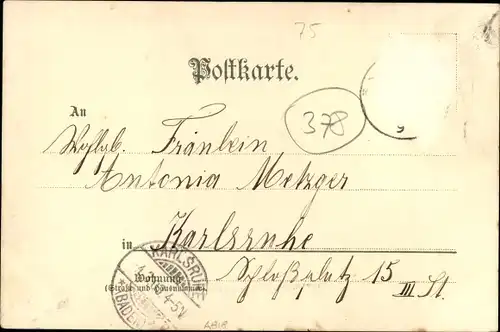 75
Postkarte.
378
An
Wohlgb. Fräulein
Antonia Metzger
in Karlsruhe
KARLSRUHE
Wohnung
(Straße und Hausnummer)
Schloßplatz 15 III St.
4-5N
* BADEN